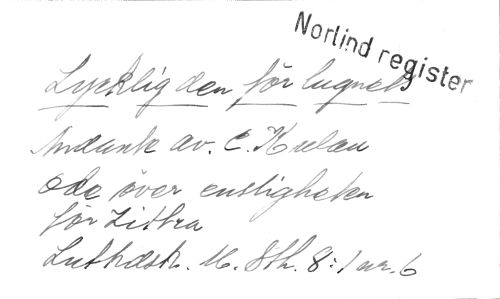 Norlind register
Lycklig den för lugnets
Andank av. C. Kulau
Ode över ensligheten
för Zittra
Luthdsk. M. Sth. 8:1 nr. 6